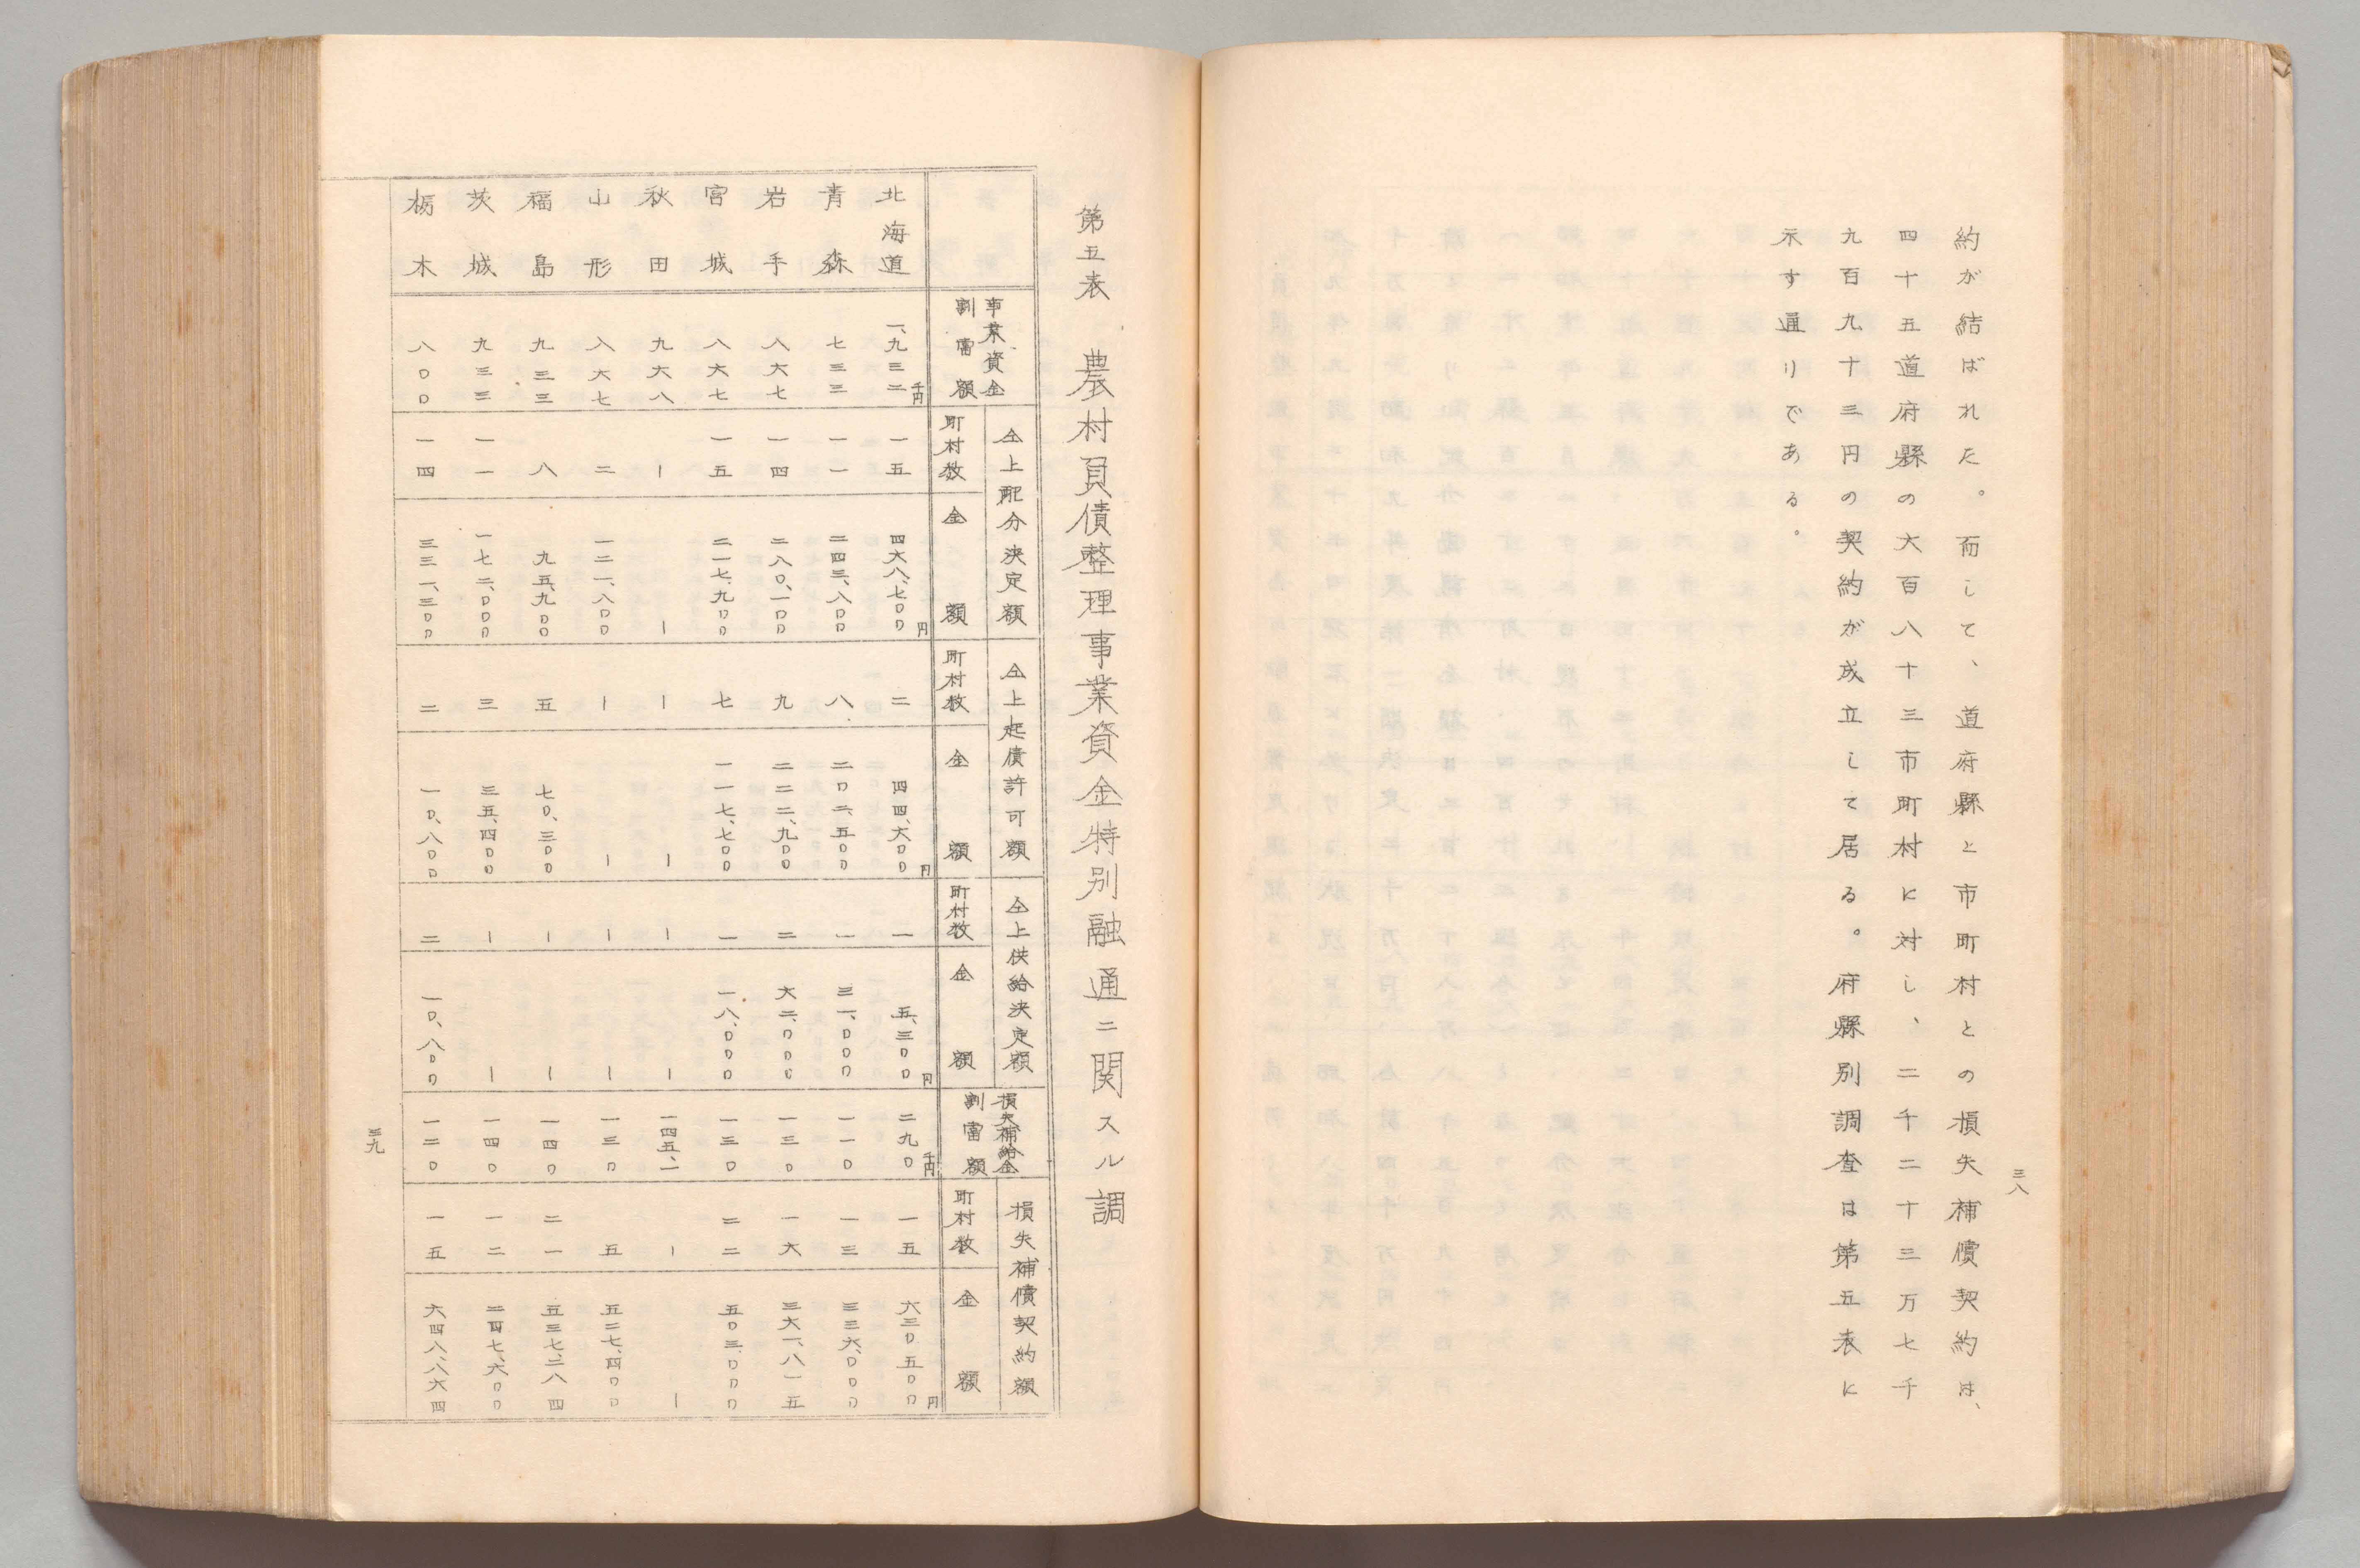 三八
約が結ばれた。而して、道府縣と市町村との損失補償契約は、
四十五道府縣の六百八十三市町村に対し、二千二十三万七千
九百九十三円の契約が成立して居る。府縣別調査は第五表に
示す通りである。
第五表　農村負債整理事業資金特別融通ニ関スル調
事業資金割當額
仝上配分決定額　町村数　金額
仝上起債許可額　町村数　金額
仝上供給決定額　町村数　金額
損失補給金割當額
損失補償契約額　町村数　金額
北海道　一、九三二千円　一五　四六八、七〇〇円　二　四四、六〇〇円　一　五、三〇〇円　二九〇千円　一五　六三〇、五〇〇円
青森　七三三　一一　二四三、八〇〇　八　二〇二、五〇〇　一　三一、〇〇〇　一一〇　一三　三三六、〇〇〇
岩手　八六七　一四　二八〇、一〇〇　九　二二二、九〇〇　二　六二、〇〇〇　一三〇　一六　三六一、八一五
宮城　八六七　一五　二一七、九〇〇　七　一一七、七〇〇　一　一八、〇〇〇　一三〇　二二　五〇三、〇〇〇
秋田　九六八　―　―　―　―　―　―　一四五、一　―　―
山形　八六七　二　一二一、八〇〇　―　―　―　―　一三〇　五　五二七、四〇〇
福島　九三三　八　九五、九〇〇　五　七〇、三〇〇　―　―　一四〇　二一　五三七、二八四
茨城　九三三　一一　一七二、〇〇〇　三　三五、四〇〇　―　―　一四〇　一二　二四七、六〇〇
栃木　八〇〇　一四　三三一、三〇〇　二　一〇、八〇〇　二　一〇、八〇〇　一二〇　一五　六四八、八六四
三九